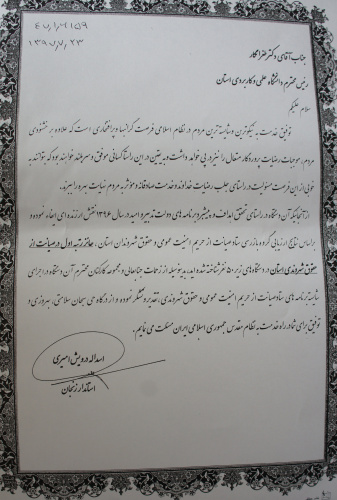 ۴۰/۱/۳۱۱۵۹
۱۳۹۷/۷/۲۳
جناب آقای دکتر ظفر افشار
رئیس محترم دانشگاه علمی و کاربردی استان
سلام علیکم
توفیق خدمت به نیکوترین و شایسته ترین مردم در نظام اسلامی فرصت گرانبها و پرافتخاری است که علاوه بر خشنودی
مردم، موجبات رضایت پروردگار متعال را نیز در پی خواهد داشت و بدیقین در این راستا کسانی موفق و سربلند خواهند بود که بتوانند به
خوبی از این فرصت مسئولیت در راستای جلب رضایت خداوند و خدمت صادقانه و موثر به مردم نهایت بهره را ببرند.
از آنجائیکه آن دستگاه در راستای تحقق اهداف و پیشبرد برنامه های دولت تدبیر و امید در سال ۱۳۹۶ نقش ارزنده ای ایفاء نموده و
براساس نتایج ارزیابی گروه بازرسی ستاد صیانت از حریم امنیت عمومی و حقوق شهروندی استان، حائز رتبه اول در صیانت از
حقوق شهروندی استان در دستگاههای زیر ۵۰ نفر شناخته شده اید، بدینوسیله از زحمات جنابعالی و مجموعه کارکنان محترم آن دستگاه در اجرای
شایسته برنامه های ستاد صیانت از حریم امنیت عمومی و حقوق شهروندی، تقدیر و تشکر نموده و از درگاه حق سبحان سلامتی، بهروزی و
توفیق برای شما در راه خدمت به نظام مقدس جمهوری اسلامی ایران مسئلت می نمایم.
اسداله درویش امیری
استاندار زنجان